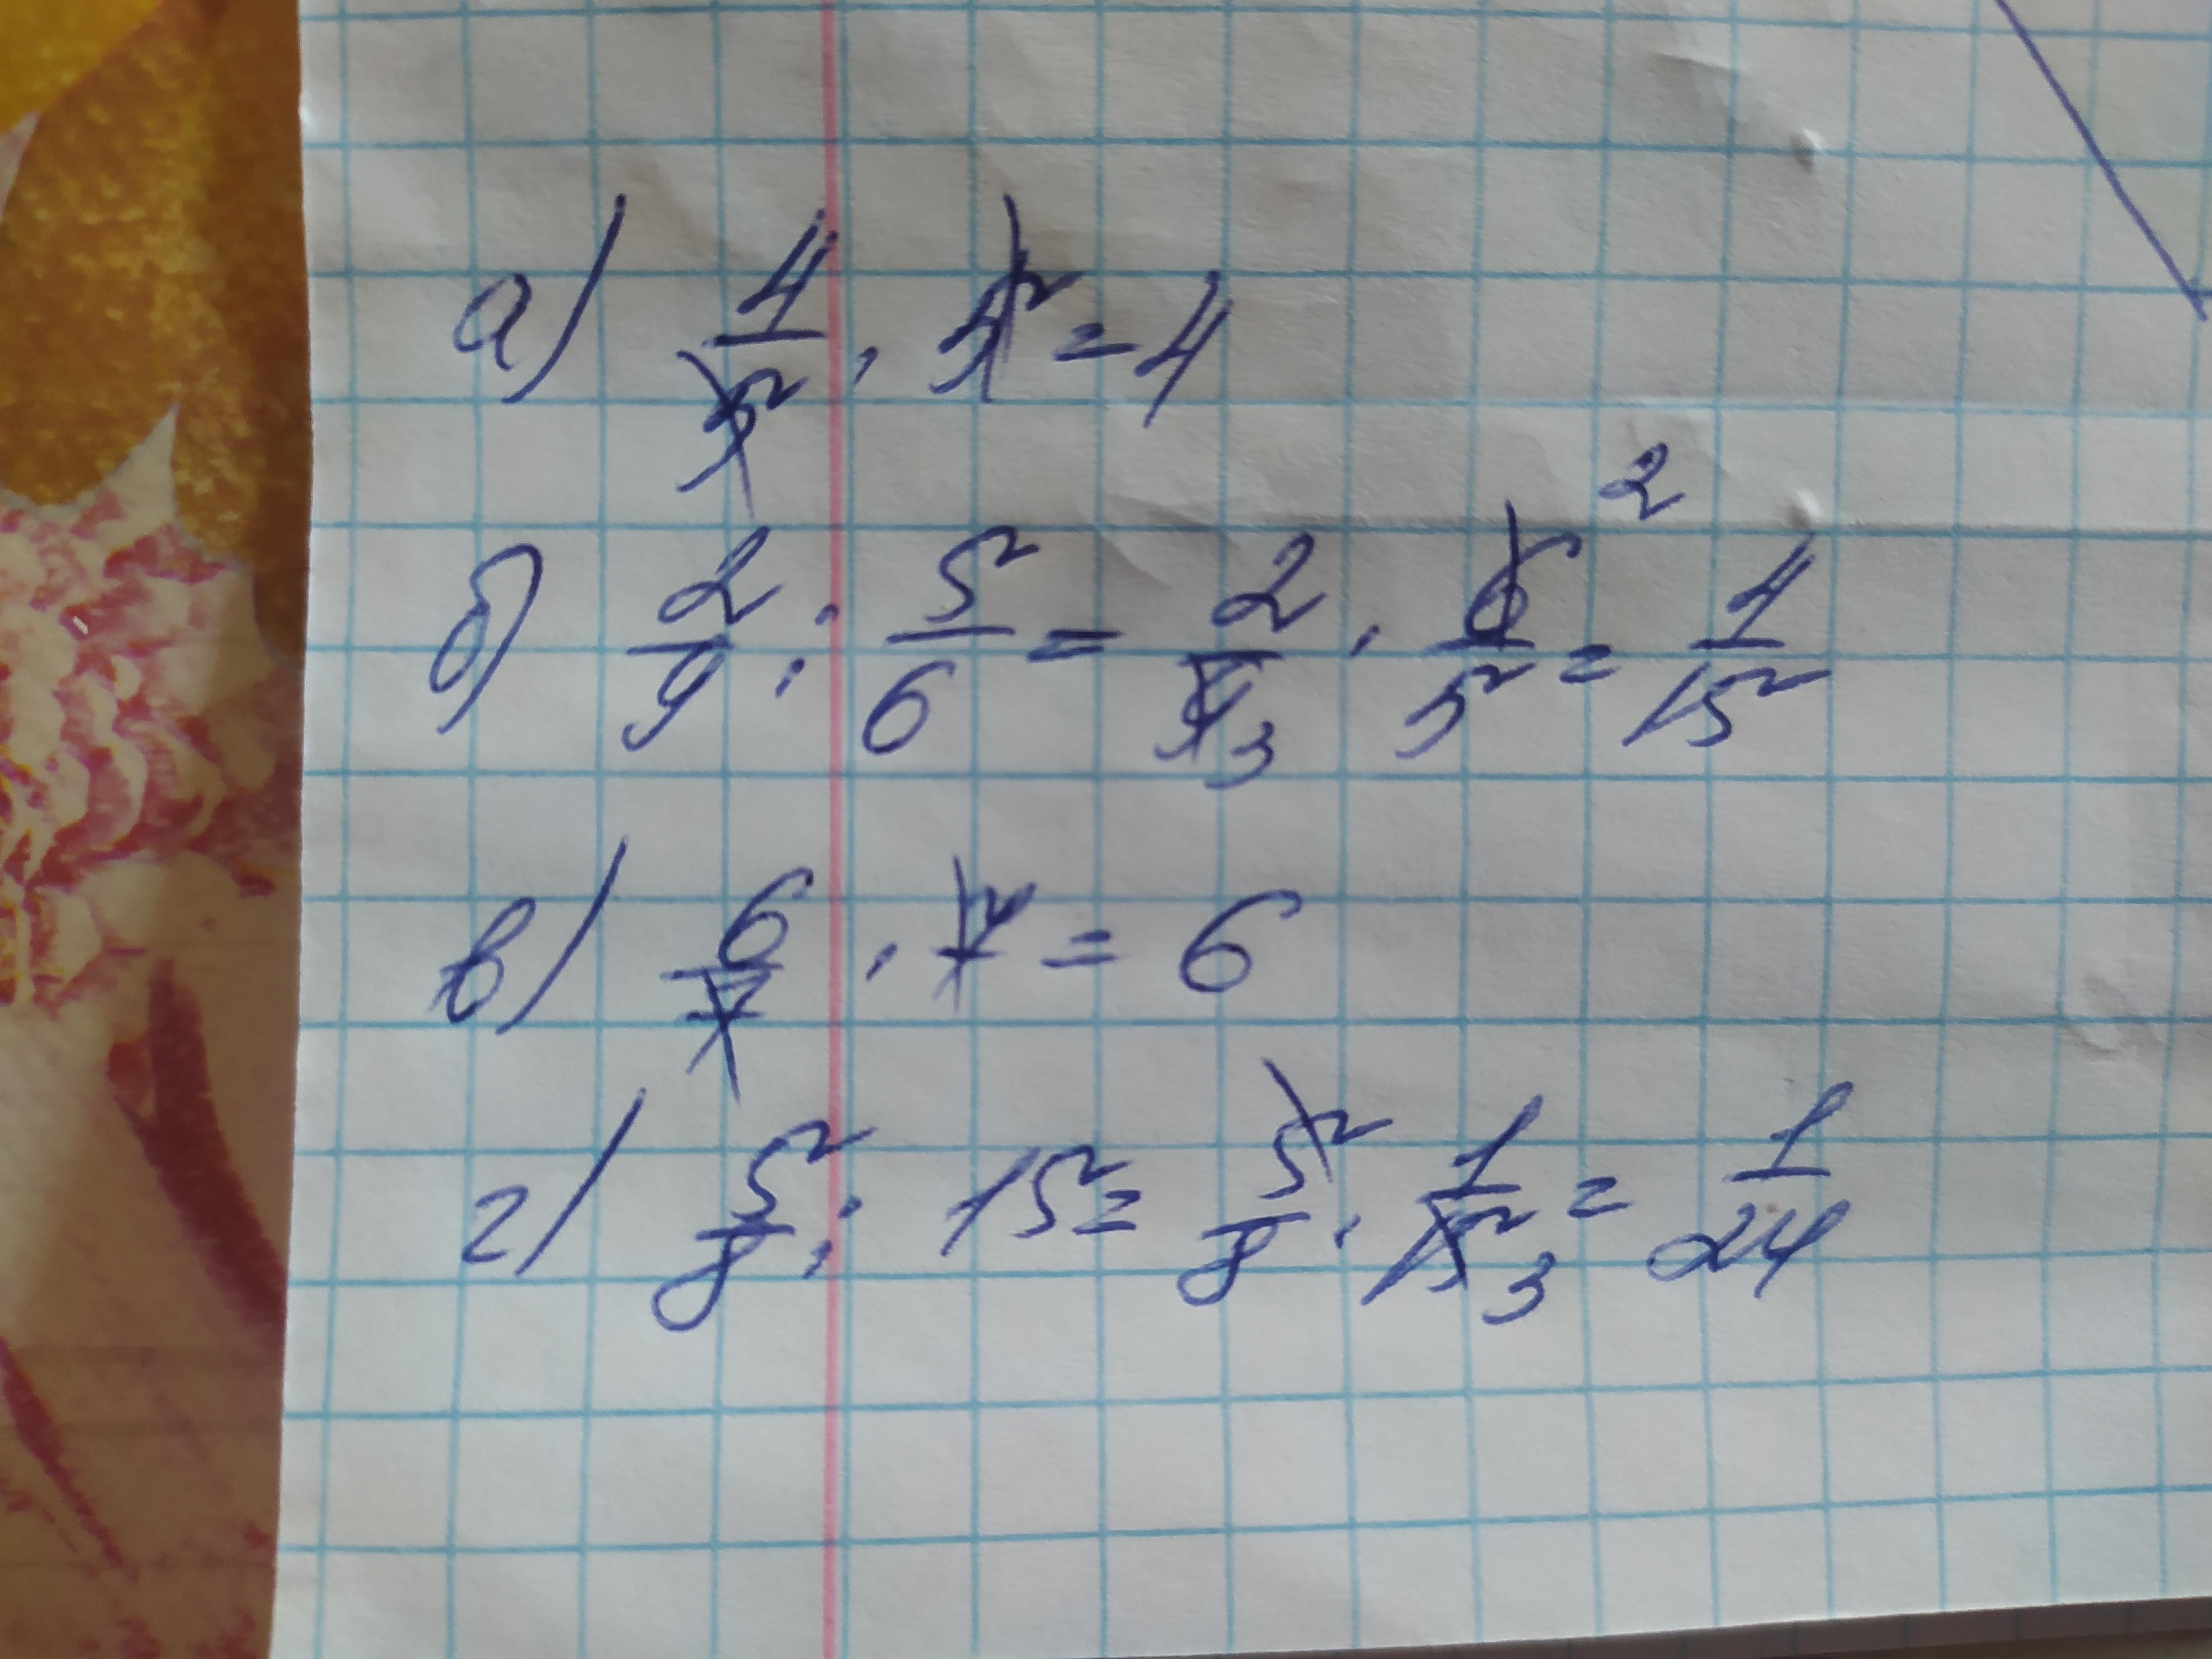 а) 4/5 · 5 = 4
б) 2/9 : 5/6 = 2/9 3 · 6 2/5 = 4/15
в) 6/7 · 7 = 6
г) 5/8 : 15 = 5/8 · 1/15 3 = 1/24